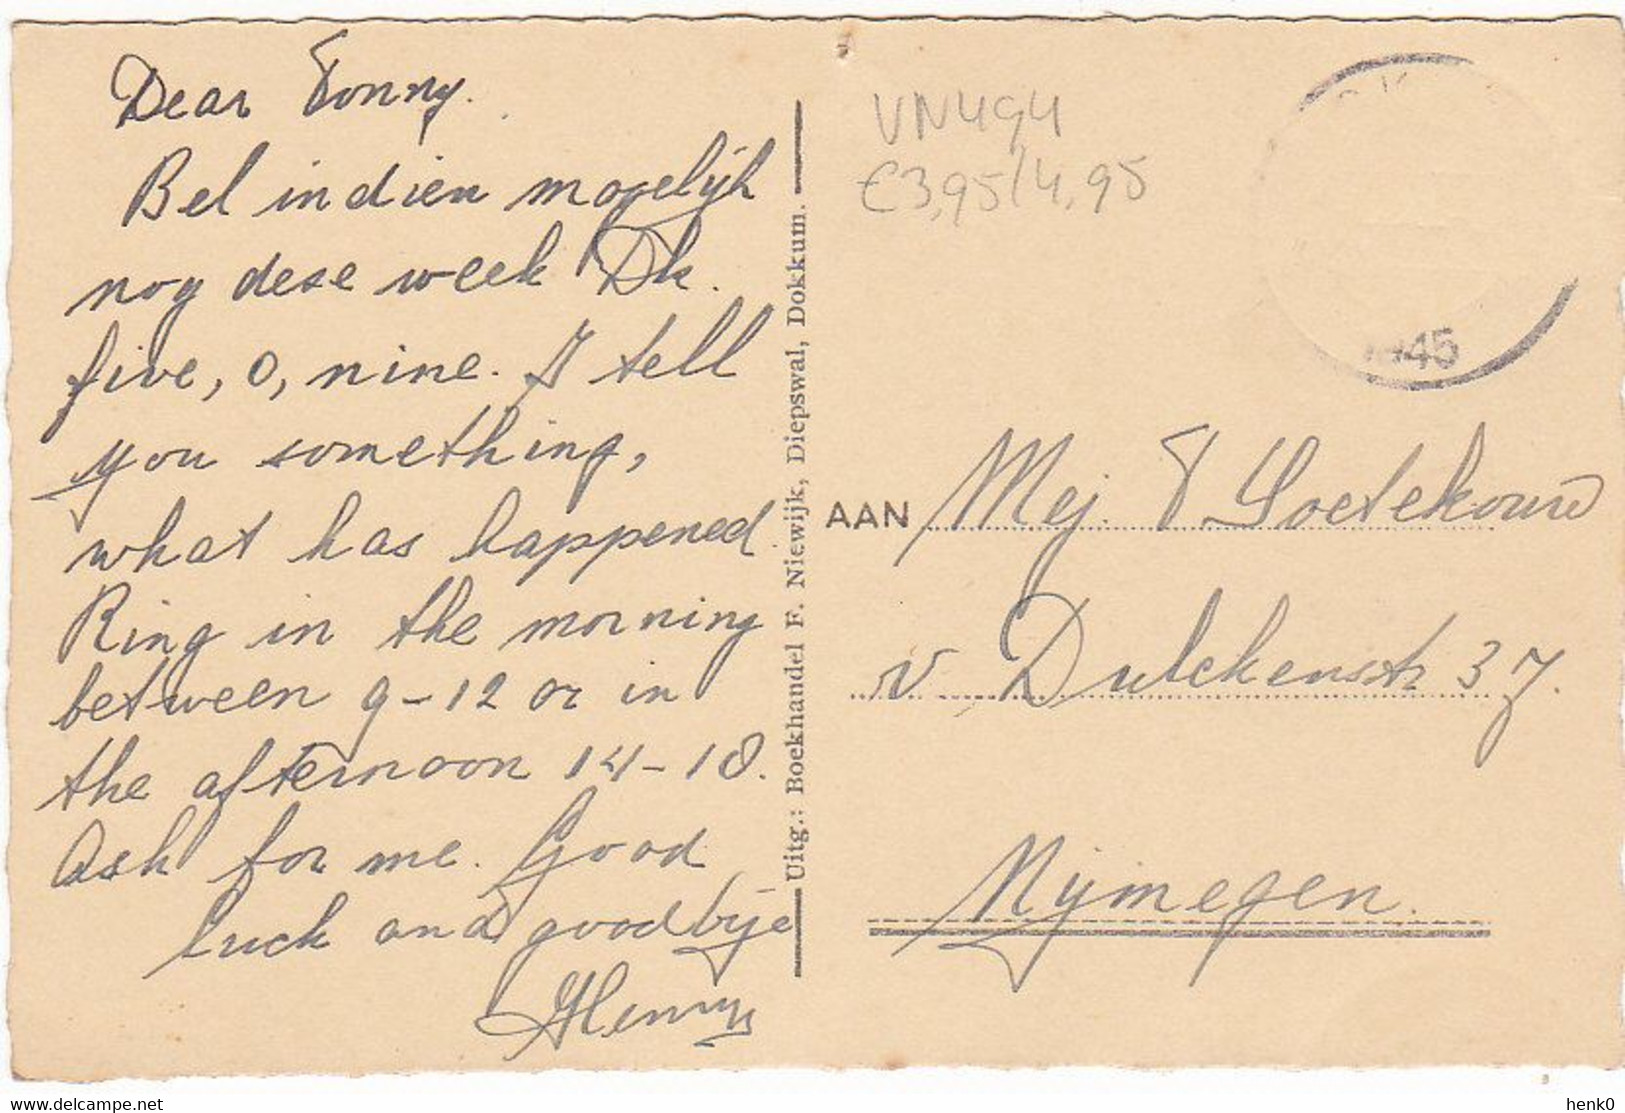 Dear Tonny.
Bel indien mogelijk
nog dese week Dk.
five, 0, nine. I tell
you something,
what has happened
Ring in the morning
between 9-12 or in
the afternoon 14-18.
Ask for me. Good
luck and goodbije
Henny
Uitg.: Boekhandel F. Niewijk, Diepswal, Dokkum.
VN494
€3,95/4,95
1945
AAN Mej. T Soetekouw
v. Dulckenstr 37.
Nijmegen.
delcampe.net
henk0